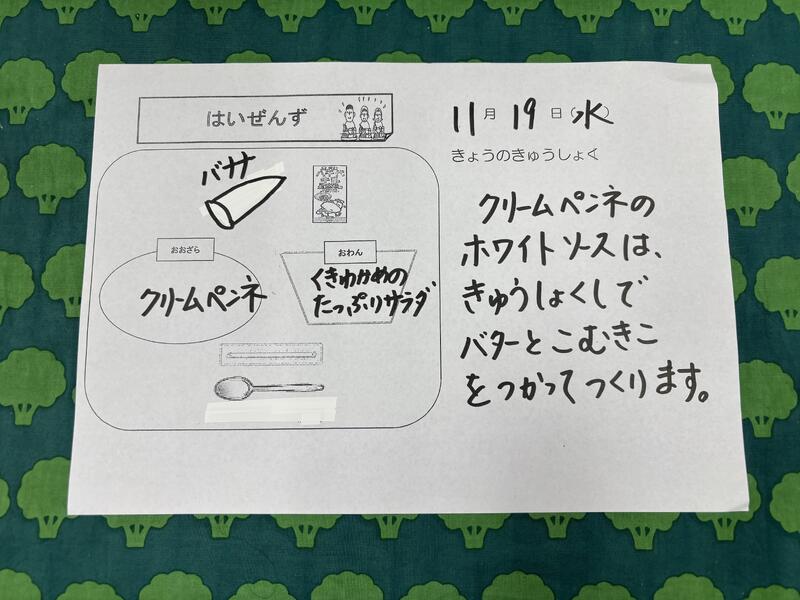 はいぜんず
バサ
おおざら
クリームペンネ
おわん
くきわかめの
たっぷりサラダ
11月19日(水)
きょうのきゅうしょく
クリームペンネの
ホワイトソースは、
きゅうしょくしで
バターとこむぎこ
をつかってつくります。